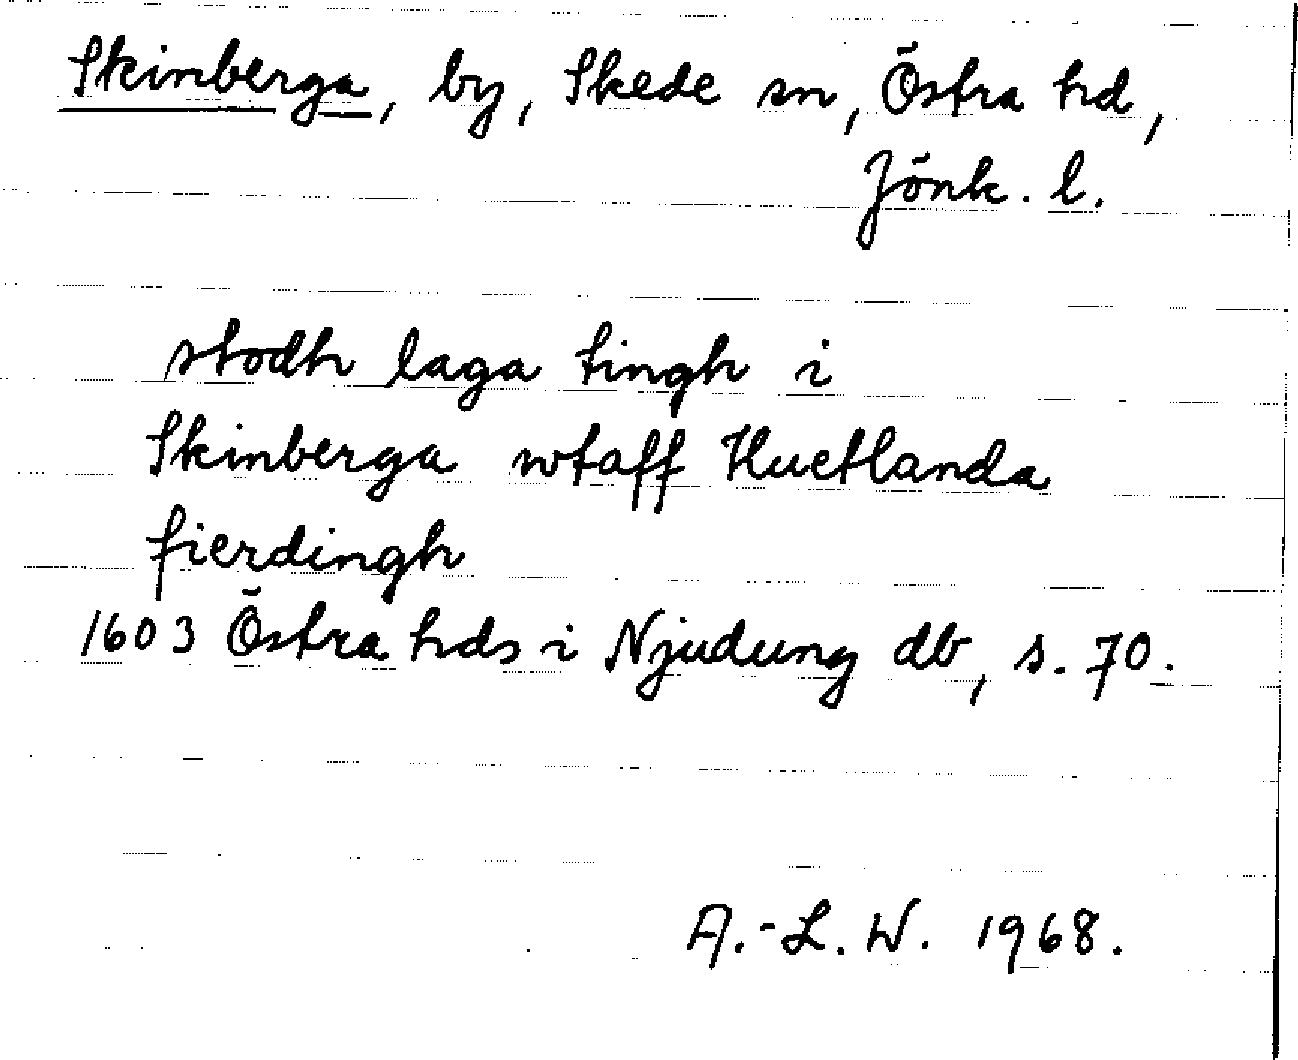 Skinberga, by, Skede sn, Östra hd,
Jönk. l.
stodh laga tingh i
Skinberga wtaff Huetlanda
fierdingh
1603 Östra hds i Njudung db, s. 70.
A.-L. W. 1968.